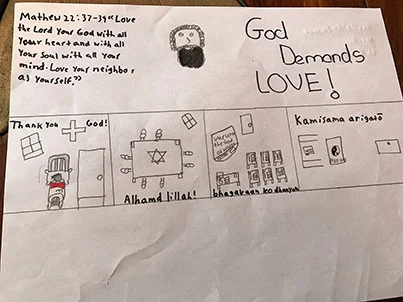 Mathew 22:37-39 "Love
the Lord Your God with all
your heart and with all
Your Soul with all your
mind. Love your neighbor
as yourself."
God
Demands
LOVE!
Thank you God!
Alhamd lillah!
bhagakaan ko dhanyavaad
Kamisama arigatō